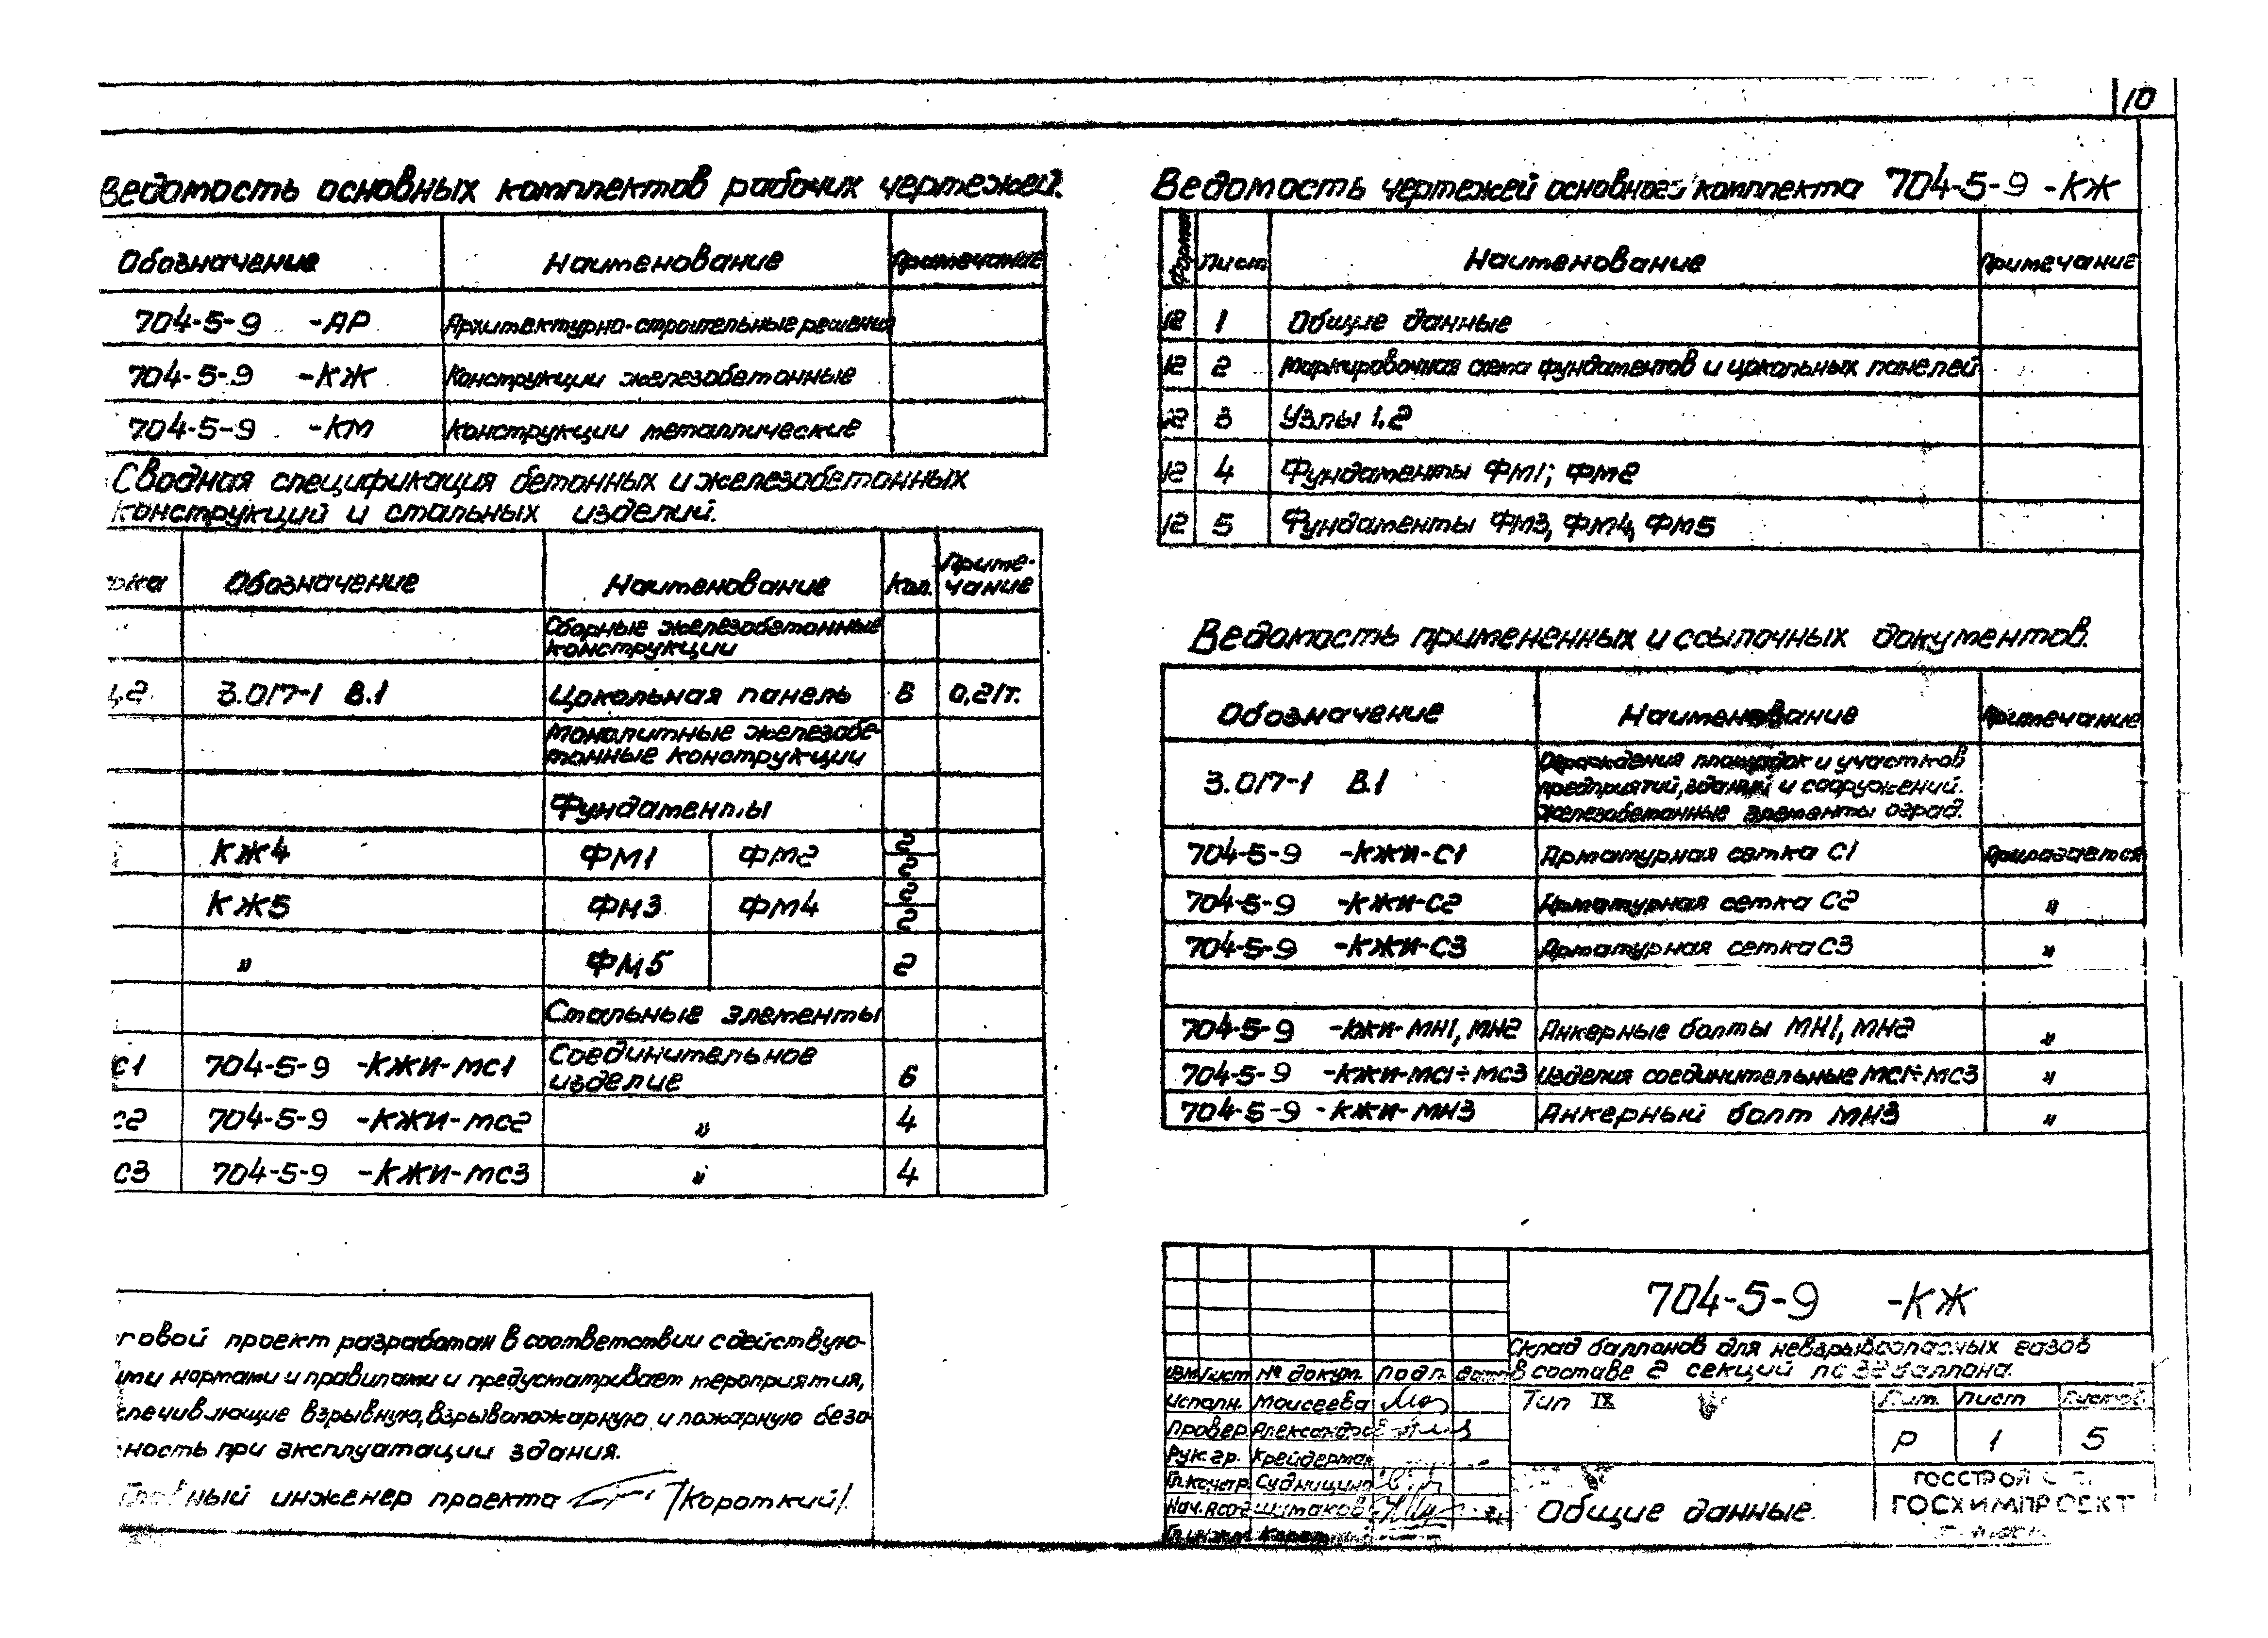 10
Ведомость основных комплектов рабочих чертежей.
Обозначение Наименование Примечание
704-5-9 -АР Архитектурно-строительные решения
704-5-9 -КЖ Конструкции железобетонные
704-5-9 -КМ Конструкции металлические
Сводная спецификация бетонных и железобетонных
конструкций и стальных изделий.
Обозначение Наименование Кол. Приме-
чание
Сборные железобетонные
конструкции
3.017-1 В.1 Цокольная панель 8 0,21т.
Монолитные железобе-
тонные конструкции
Фундаменты
КЖ4 ФМ1 ФМ2 2 2
КЖ5 ФМ3 ФМ4 2 2
" ФМ5 2
Стальные элементы
С1 704-5-9 -КЖИ-МС1 Соединительное
изделие 6
С2 704-5-9 -КЖИ-МС2 " 4
С3 704-5-9 -КЖИ-МС3 " 4
говой проект разработан в соответствии с действую-
ими нормами и правилами и предусматривает мероприятия,
спечивающие взрывную, взрывопожарную и пожарную безо-
ность при эксплуатации здания.
Главный инженер проекта /Короткий/.
Ведомость чертежей основного комплекта 704-5-9 -КЖ
Формат Лист Наименование Примечание
12 1 Общие данные
12 2 Маркировочная схема фундаментов и цокольных панелей
12 3 Узлы 1,2
12 4 Фундаменты ФМ1; ФМ2
12 5 Фундаменты ФМ3, ФМ4, ФМ5
Ведомость примененных и ссылочных документов.
Обозначение Наименование Примечание
3.017-1 В.1 Ограждения площадок и участков
предприятий, зданий и сооружений.
Железобетонные элементы оград.
704-5-9 -КЖИ-С1 Арматурная сетка С1 Прилагается
704-5-9 -КЖИ-С2 Арматурная сетка С2 "
704-5-9 -КЖИ-С3 Арматурная сетка С3 "
704-5-9 -КЖИ-МН1, МН2 Анкерные болты МН1, МН2 "
704-5-9 -КЖИ-МС1÷МС3 Изделия соединительные МС1÷МС3 "
704-5-9 -КЖИ-МН3 Анкерный болт МН3 "
704-5-9 -КЖ
Склад баллонов для невзрывоопасных газов
в составе 2 секций по 32 баллона.
Изм Лист № докум. Подп. Дата
Исполн. Моисеева
Провер. Александро
Рук. гр. Крейдерман
Гл.констр. Судницина
Нач. АСО-2 Шумаков
Гл.инж.пр Короткий
Тип IX
Лит. Лист Листов
Р 1 5
Общие данные.
ГОССТРОЙ
ГОСХИМПРОЕКТ